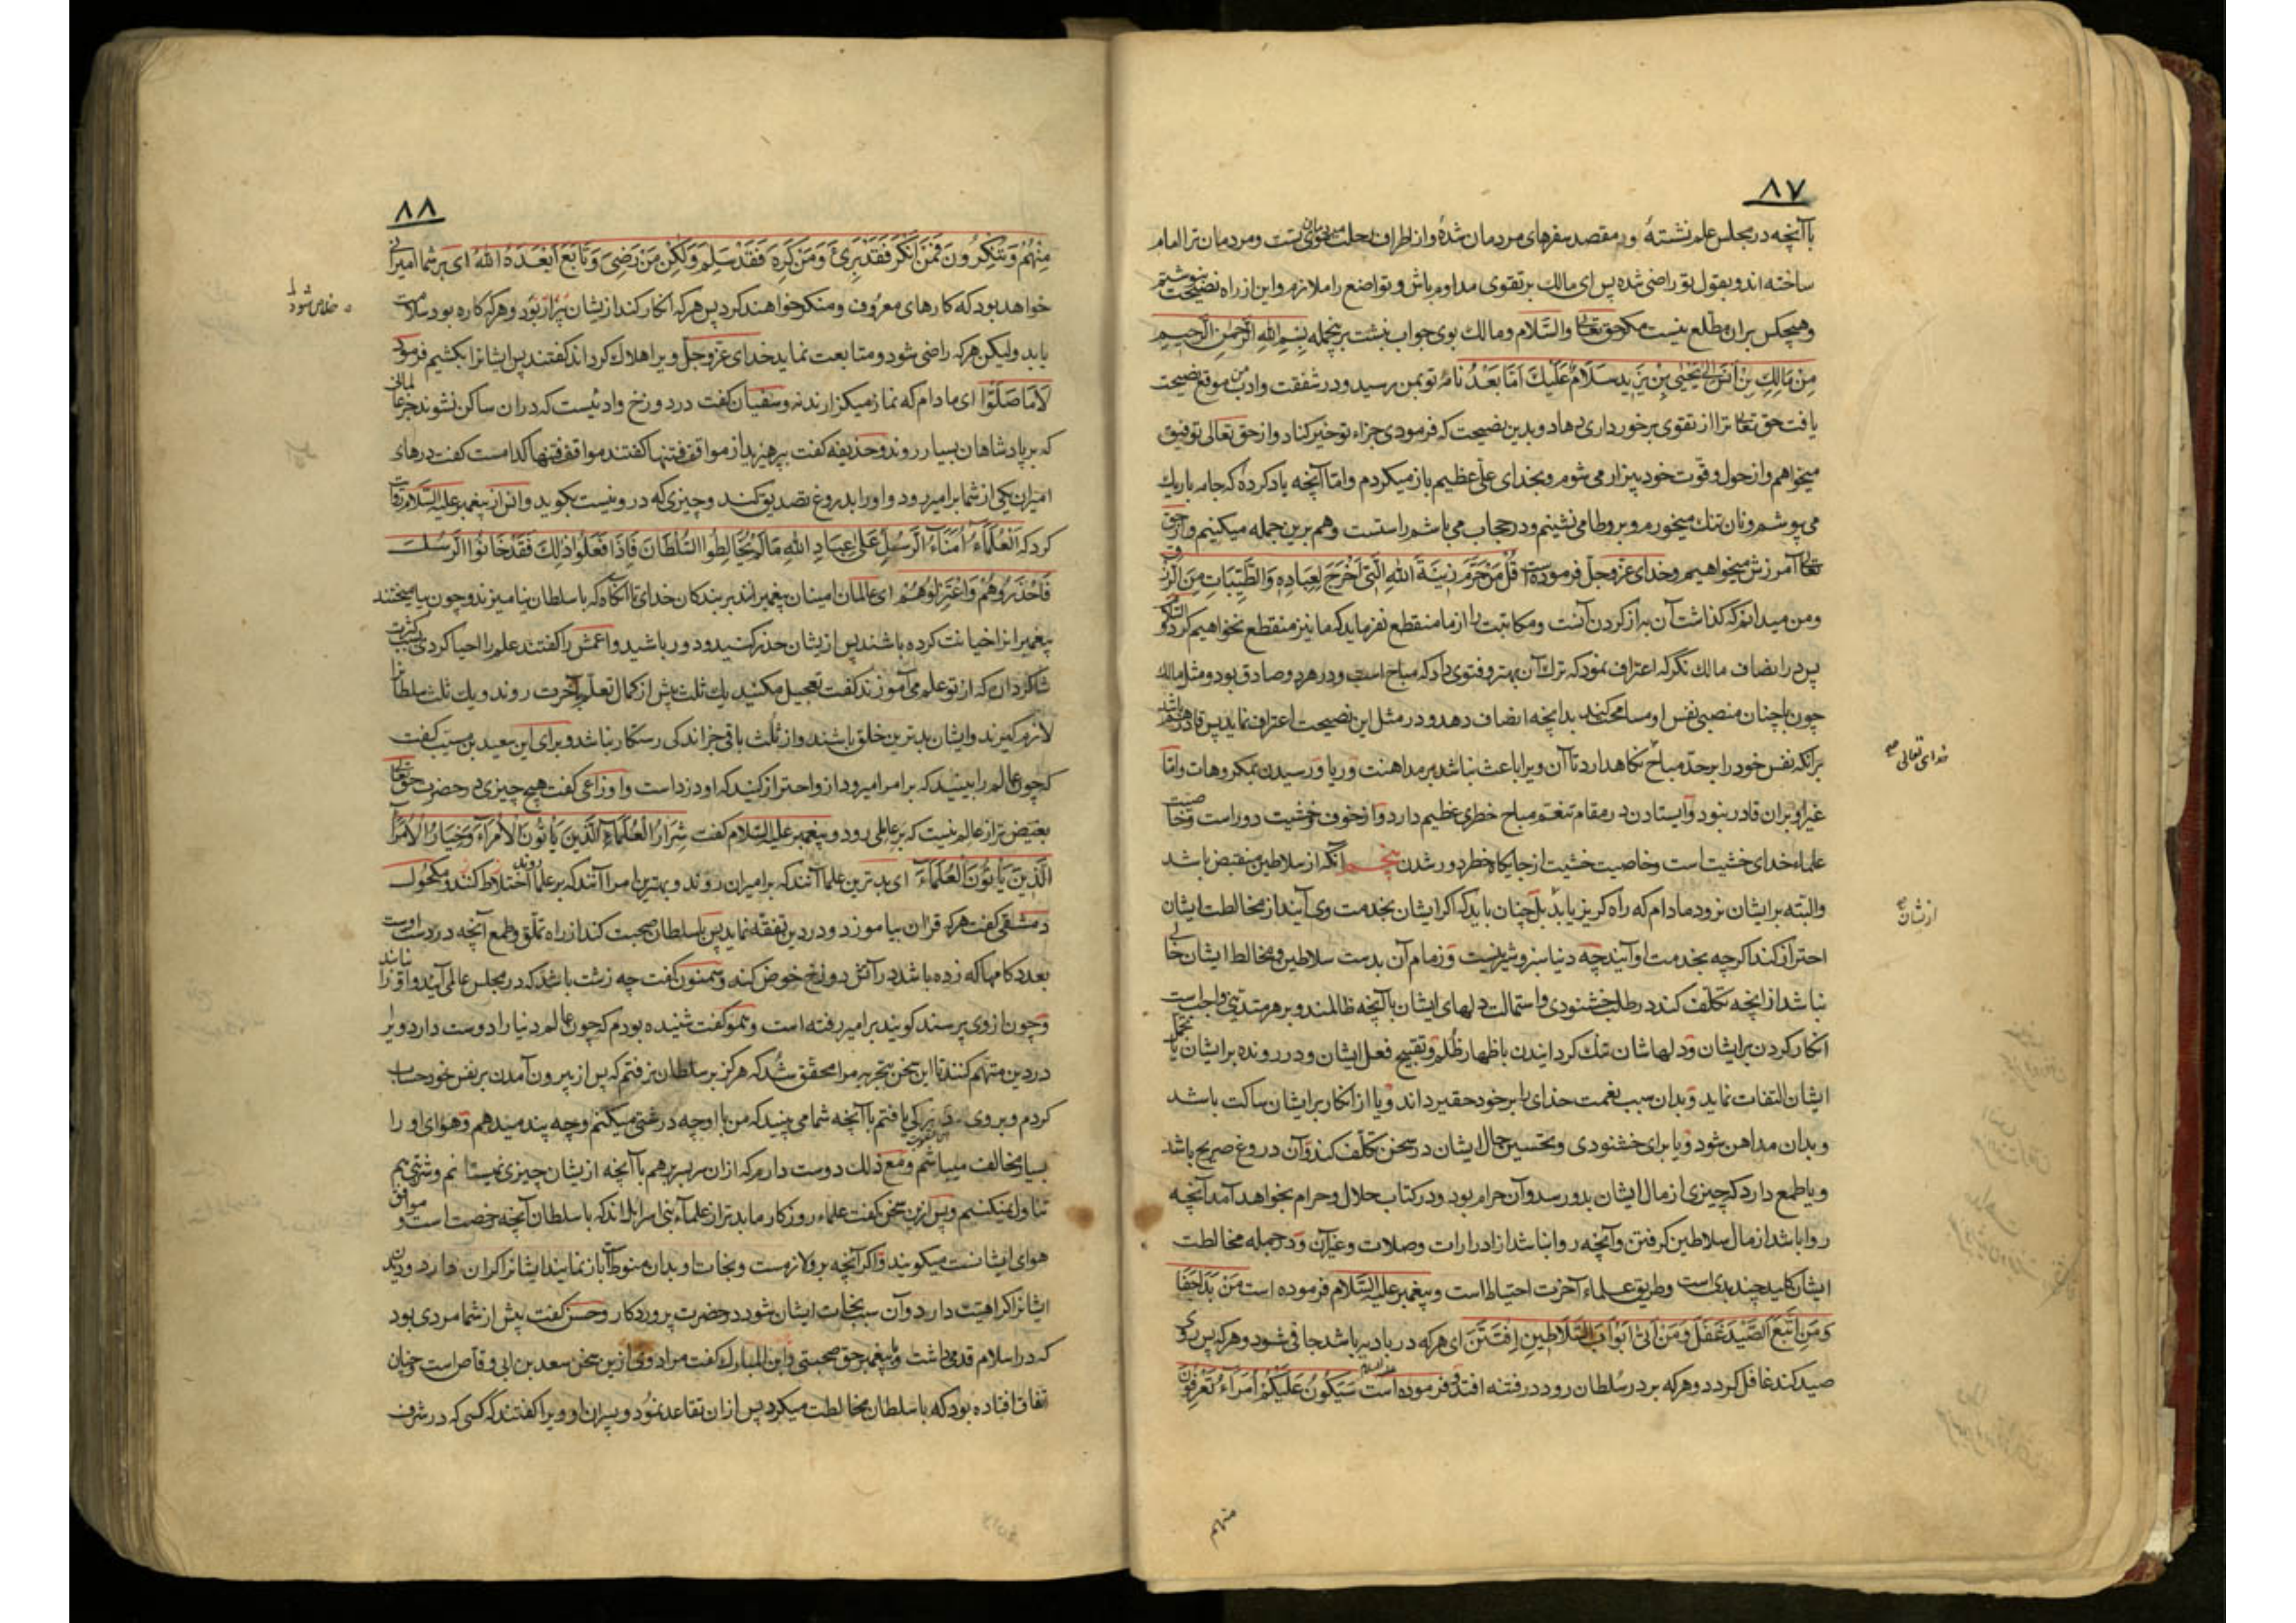 ٨٧
باآنچه در مجلس علم نشستهٔ ومقصد سفرهای مردمان شدهٔ واز اطراف رحلت بسوی تست ومردمان ترا امام
ساخته اند وبقول تو راضی شده پس ای مالک بر تقوی مداوم باش وتواضع را ملازم واین از راه نصیحت بنوشتم
وهیچکس بران مطّلع نیست مکر حق تعالی والسّلام ومالک بوی جواب نبشت برینجمله بِسْمِ اللهِ الرَّحْمٰنِ الرَّحِیمِ
مِنْ مَالِكِ بْنِ اَنَسٍ اِلیٰ یَحْییٰ بْنِ یَزِیدَ سَلَامٌ عَلَیْكَ اَمَّا بَعْدُ نامهٔ تو بمن رسید ودر شفقت وادب من موقع نصیحت
یافت حق تعالی ترا از تقوی برخورداری دهاد وبدین نصیحت که فرمودی جزاء تو خیر کناد واز حق تعالی توفیق
میخواهم واز حول وقوّت خود بیزار می شوم وبخدای علیّ عظیم باز میکردم وامّا آنچه یاد کردهٔ که جامه باریك
می پوشم ونان تنك میخورم وبر وطا می نشینم ودر حجاب می باشم راستست وهم برین جمله میکنیم واز حق
تعالی آمرزش میخواهیم وخدای عزّ وجلّ فرموده است قُلْ مَنْ حَرَّمَ زِینَةَ اللهِ الَّتِی اَخْرَجَ لِعِبَادِهِ وَالطَّیِّبَاتِ مِنَ الرِّزْقِ
ومن میدانم که کذاشت آن به از کردن آنست ومکاتبت را از ما منقطع نفرماید که ما نیز منقطع نخواهیم کرد والسّلام
پس در انصاف مالك نکر که اعتراف نمود که ترك آن بهتر وفتوی داد که مباح است ودر هردو صادق بود ومثل مالك
چون باچنان منصبی نفس او مسامحت کند بدانچه انصاف دهد ودر مثل این نصیحت اعتراف نماید پس قادر باشد
برانکه نفس خود را بر حدّ مباح نکاهدارد تا آن ویرا باعث نباشد بر مداهنت وریا ورسیدن بمکروهات وامّا
خدای تعالی
غیر او بران قادر نبود وایستادن در مقام تنعّم مباح خطری عظیم دارد واز خوف وخشیت دوراست وخاصیت
علماء خدای خشیت است وخاصیت خشیت از جایکاه خطر دور شدن پنجم آنکه از سلاطین منقبض باشد
والبته بر ایشان نرود مادام که راه کریز یابد بل چنان باید که اکر ایشان بخدمت وی آیند از مخالطت ایشان
ازیشان
احتراز کند اکرچه بخدمت او آیند چه دنیا سبز وشیرینست وزمام آن بدست سلاطین ومخالط ایشان خالی
نباشد از انچه تکلّف کند در طلب خشنودی واستمالت دلهای ایشان باآنچه ظالمند وبر هر متدیّنی واجب است
انکار کردن بر ایشان ودلهاشان تنك کردانیدن باظهار ظلم وتقبیح فعل ایشان ودر رونده بر ایشان یا بتجمّل
ایشان التفات نماید وبدان سبب نعمت خدای را بر خود حقیر داند ویا از انکار بر ایشان ساکت باشد
وبدان مداهن شود ویا برای خشنودی وتحسین حال ایشان در سخن تکلّف کند وآن دروغ صریح باشد
ویا طمع دارد که چیزی از مال ایشان بدو رسد وآن حرام بود ودر کتاب حلال وحرام بخواهد آمد آنچه
روا باشد از مال سلاطین کرفتن وآنچه روا نباشد از ادرارات وصلات وغیر آن ودر جمله مخالطت
ایشان کلید چند بدی است وطریق علماء آخرت احتیاط است وپیغمبر علیه السّلام فرموده است مَنْ بَدَا جَفَا
وَمَنِ اتَّبَعَ الصَّیْدَ غَفَلَ وَمَنْ اَتیٰ اَبْوَابَ السَّلَاطِینِ اِفْتَتَنَ ای هرکه در بادیه باشد جافی شود وهرکه پس روی
صید کند غافل کردد وهرکه بر در سلطان رود در فتنه افتد وفرموده است علیه السلام سَیَکُونُ عَلَیْکُمْ اُمَرَاءُ تَعْرِفُونَ
منهم
٨٨
مِنْهُمْ وَتُنْکِرُونَ فَمَنْ اَنْکَرَ فَقَدْ بَرِئَ وَمَنْ کَرِهَ فَقَدْ سَلِمَ وَلٰکِنْ مَنْ رَضِیَ وَتَابَعَ اَبْعَدَهُ اللهُ ای بر شما امیرانی
خواهد بود که کارهای معروف ومنکر خواهند کرد پس هرکه انکار کند ازیشان بیزار بود وهرکه کاره بود سلامت
خلاص شود
یابد ولیکن هرکه راضی شود ومتابعت نماید خدای عزّ وجلّ ویرا هلاك کرداند کفتند پس ایشانرا بکشیم فرمود
لَا مَا صَلَّوْا ای مادام که نماز میکزارند نه وسفیان کفت در دوزخ وادئیست که دران ساکن نشوند جز عالمانی
که بر پادشاهان بسیار روند وحذیفه کفت بپرهیزید از مواقف فتنها کفتند مواقف فتنها کدامست کفت درهای
امیران یکی از شما بر امیر رود واورا بدروغ تصدیق کند وچیزی که درو نیست بکوید وانس از پیغمبر علیه السّلام روایت
کرد که اَلْعُلَمَاءُ اُمَنَاءُ الرُّسُلِ عَلیٰ عِبَادِ اللهِ مَا لَمْ یُخَالِطُوا السُّلْطَانَ فَاِذَا فَعَلُوا ذٰلِكَ فَقَدْ خَانُوا الرُّسُلَ
فَاحْذَرُوهُمْ وَاعْتَزِلُوهُمْ ای عالمان امینان پیغمبرانند بر بندکان خدای تا آنکاه که با سلطان نیامیزند وچون بیامیختند
پیغمبرانرا خیانت کرده باشند پس ازیشان حذر کنید ودور باشید واعمش را کفتند علم را احیا کردی بسبب کثرت
شاکردان که از تو علم می آموزند کفت تعجیل مکنید یك ثلث پیش از کمال تعلّم بآخرت روند ویك ثلث سلطانرا
لازم کیرند وایشان بدترین خلق باشند واز ثلث باقی جز اندکی رستکار نباشد وبرای این سعید بن مسیّب کفت
که چون عالم را بینید که بر امرا میرود از واحتراز کنید که او دزداست واوزاعی کفت هیچ چیزی در حضرت حق تعالی
بغیض تر از عالم نیست که بر عاملی رود وپیغمبر علیه السّلام کفت شِرَارُ الْعُلَمَاءِ الَّذِینَ یَأْتُونَ الْاُمَرَاءَ وَخِیَارُ الْاُمَرَاءِ
الَّذِینَ یَأْتُونَ الْعُلَمَاءَ ای بدترین علما آنند که بر امیران روند وبهترین امرا آنند که بر علما روند اختلاط کنند ومکحول
دمشقی کفت هرکه قرآن بیاموزد ودر دین تفقّه نماید پس با سلطان صحبت کند از راه تملّق وطمع آنچه در دست اوست
بعدد کامها که زده باشد در آتش دوزخ خوض کند وسمنون کفت چه زشت باشد که در مجلس عالمی آیند واورا نیابند
وچون از وی پرسند کویند بر امیر رفته است وهمو کفت شنیده بودم که چون عالم دنیا را دوست دارد ویرا
در دین متهم کنند تا این سخن بتجربه مرا محقّق شد که هرکز بر سلطان نرفتم که پس از بیرون آمدن بر نفس خود حساب
کردم وبروی یافتم باآنچه شما می بینید که من با او چه درشتی میکنم وچه پند میدهم وهوای او را
بسیار مخالف میباشم ومع ذلك دوست دارم که ازان سر بسر برهم باآنچه ازیشان چیزی نمیستانم وشربتی هم
تناول نمیکنم وپس ازین سخن کفت علماء روزکار ما بدتر از علماء بنی اسرائیل اند که با سلطان آنچه رخصت است وموافق
هوای ایشانست میکویند واکر آنچه برو لازمست ونجات او بدان منوط است باز نمایند ایشانرا کران دارد
ایشانرا کراهیت دارد وآن سبب نجات ایشان شود در حضرت پروردکار وحسن کفت پیش از شما مردی بود
که در اسلام قدمی داشت وبا پیغمبر حق صحبتی وابن المبارك کفت مراد وی ازین سخن سعد بن ابی وقاص است وچنان
اتفاق افتاده بود که با سلطان مخالطت میکرد پس ازان تقاعد نمود وپسران او ویرا کفتند که کسی که در شرف